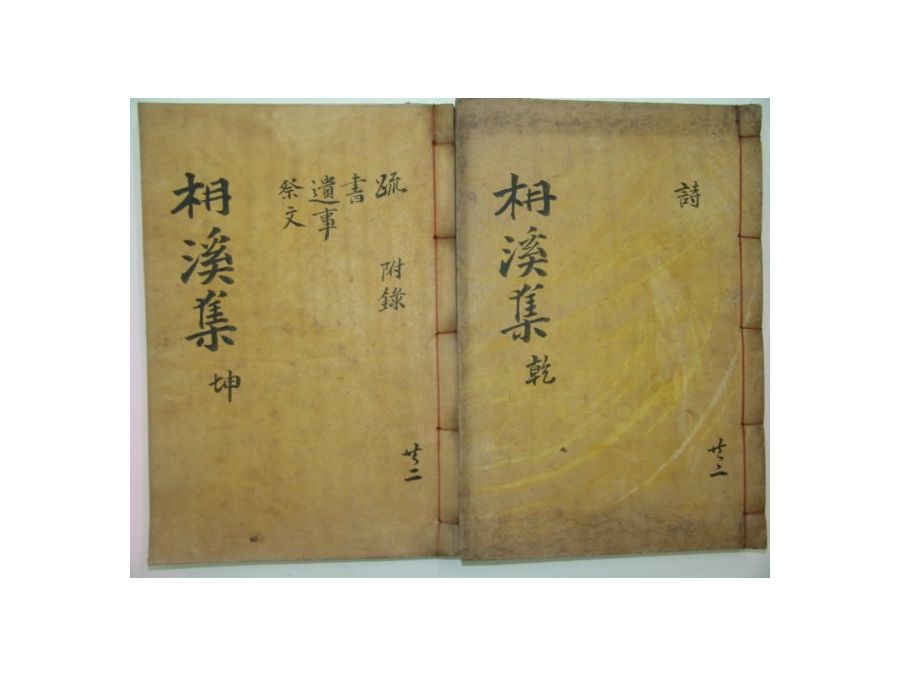 詩
共二
枏溪集 乾
疏 附錄
書
遺事
祭文
共二
枏溪集 坤